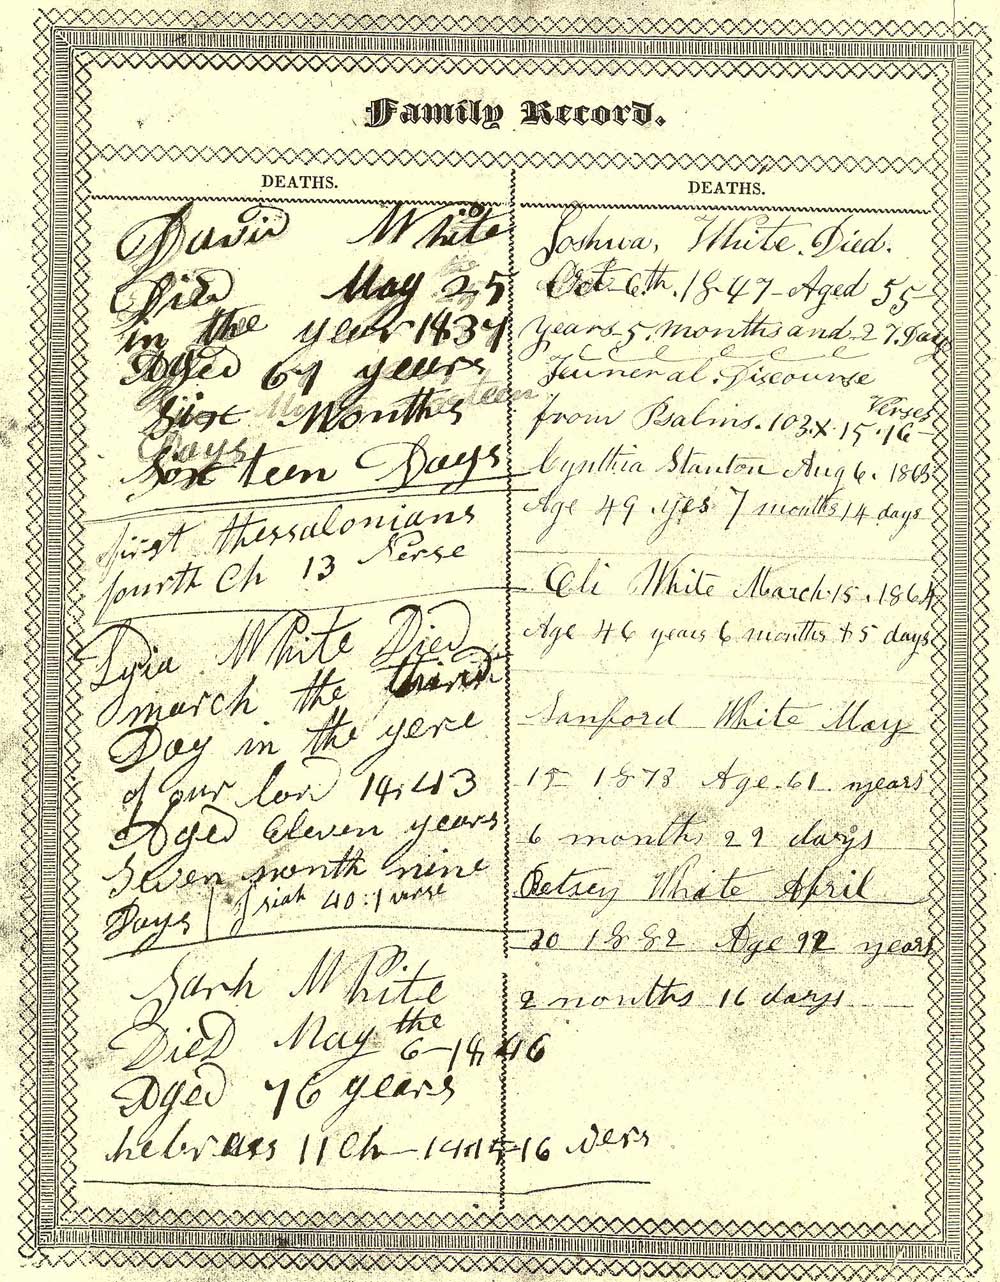 Family Record.
DEATHS.
David White
Died May 25
in the year 1837
Aged 67 years
Six Months
Days
Sixteen Days
first thessalonians
fourth Ch 13 Verse
Lyia White Died
march the third
Day in the yere
of our lord 1843
Aged Eleven years
Seven month nine
Days Isiah 40:1 verse
Sarh White
Died May the
6-1846
Aged 76 years
hebrews 11 Ch-14-15-16 vers
DEATHS.
Joshua, White. Died.
Oct-6th. 1847-Aged 55-
years-5. months and-27. Days
Funeral. Discourse
from Psalms. 103.x.15.16- Verses
Cynthia Stanton Aug 6. 1863
Age 49 yrs 7 months 14 days
Eli White March. 15. 1864
Age 46 years 6 months + 5 days
Sanford White May
15 1873 Age. 61. years
6 months 29 days
Betsey White April
30 1882 Age 92 years
2 months 16 days